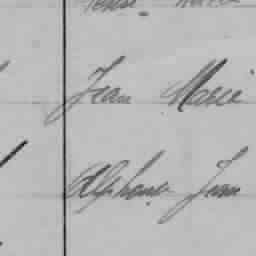 Jean Marie
Alphonse Jean